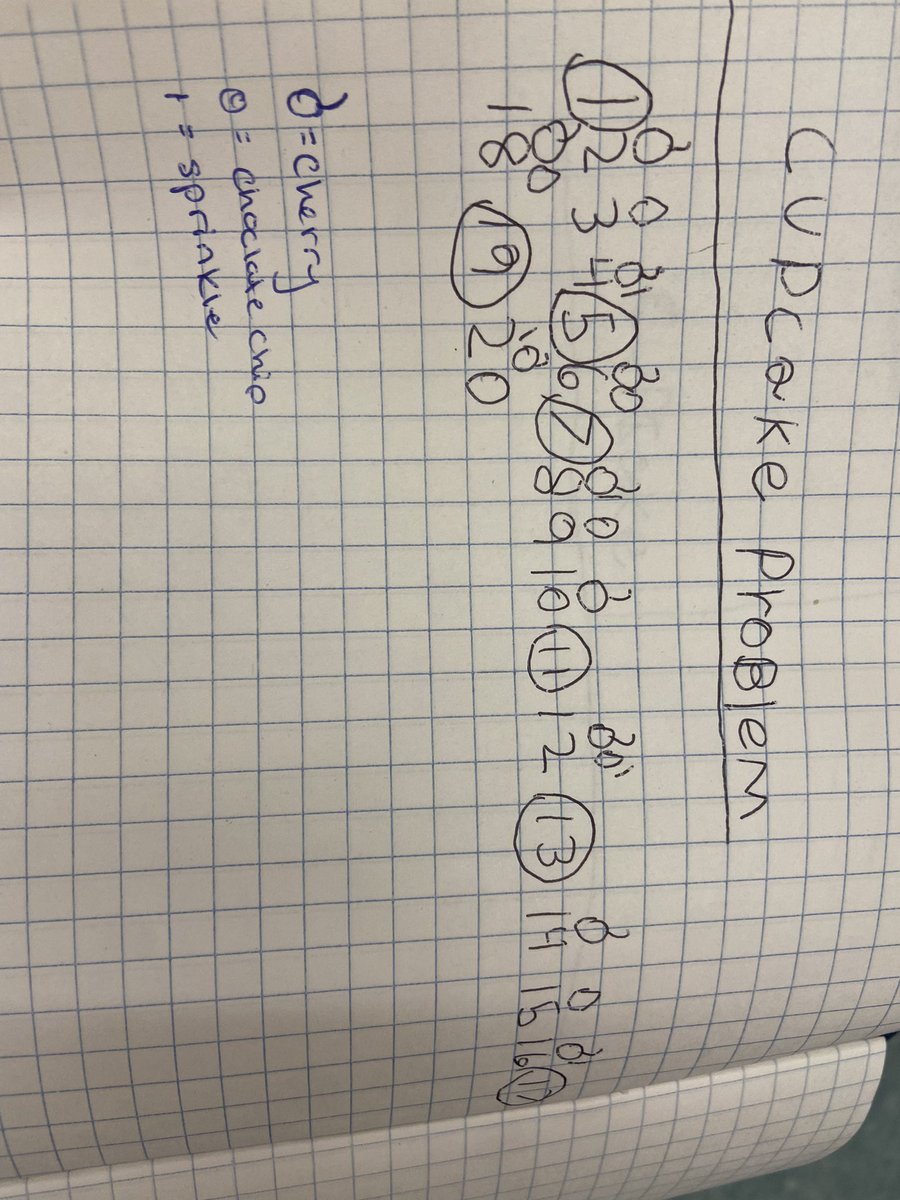 Cupcake ProBlem
1 2 3 4 5 6 7 8 9 10 11 12 13 14 15 16 17
18 19 20
= cherry
= choclate chip
= sprinkle